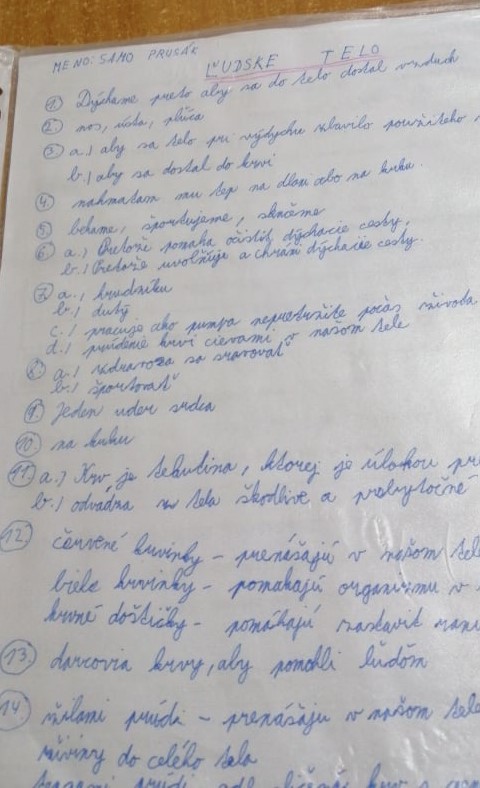 MENO: SAMO PRUSÁK
ĽUDSKE TELO
1. Dýchame preto aby sa do telo dostal vzduch
2. nos, ústa, plúca
3. a.) aby sa telo pri výdychu zbavilo použitého
b.) aby sa dostal do krvi
4. nahmatam mu tep na dlani abo na krku.
5. beháme, športujeme, skáčeme
6. a.) Pretože pomaha očistiť dýchacie cesty,
b.) Pretože uvolňuje a chráni dýchacie cesty.
7. a.) hrudníku
b.) dutý
c.) pracuje ako pumpa nepretržite počas života
d.) prúdenie krvi cievami v našom tele
8. a.) zdravo sa stravovať
b.) športovať
9. Jeden uder srdca
10. na krku
11. a.) Krv je tekutina, ktorej je úlohou
b.) odvádza tela škodlive a prebytočné
12. červené krvinky - prenášajú v našom tele
biele krvinky - pomahajú organizmu v
krvné doštičky - pomáhajú zastaviť
13. darcovia krvy, aby pomohli ľuďom
14. žilami prúdi - prenášaju v našom tele
živiny do celého tela
prúdi